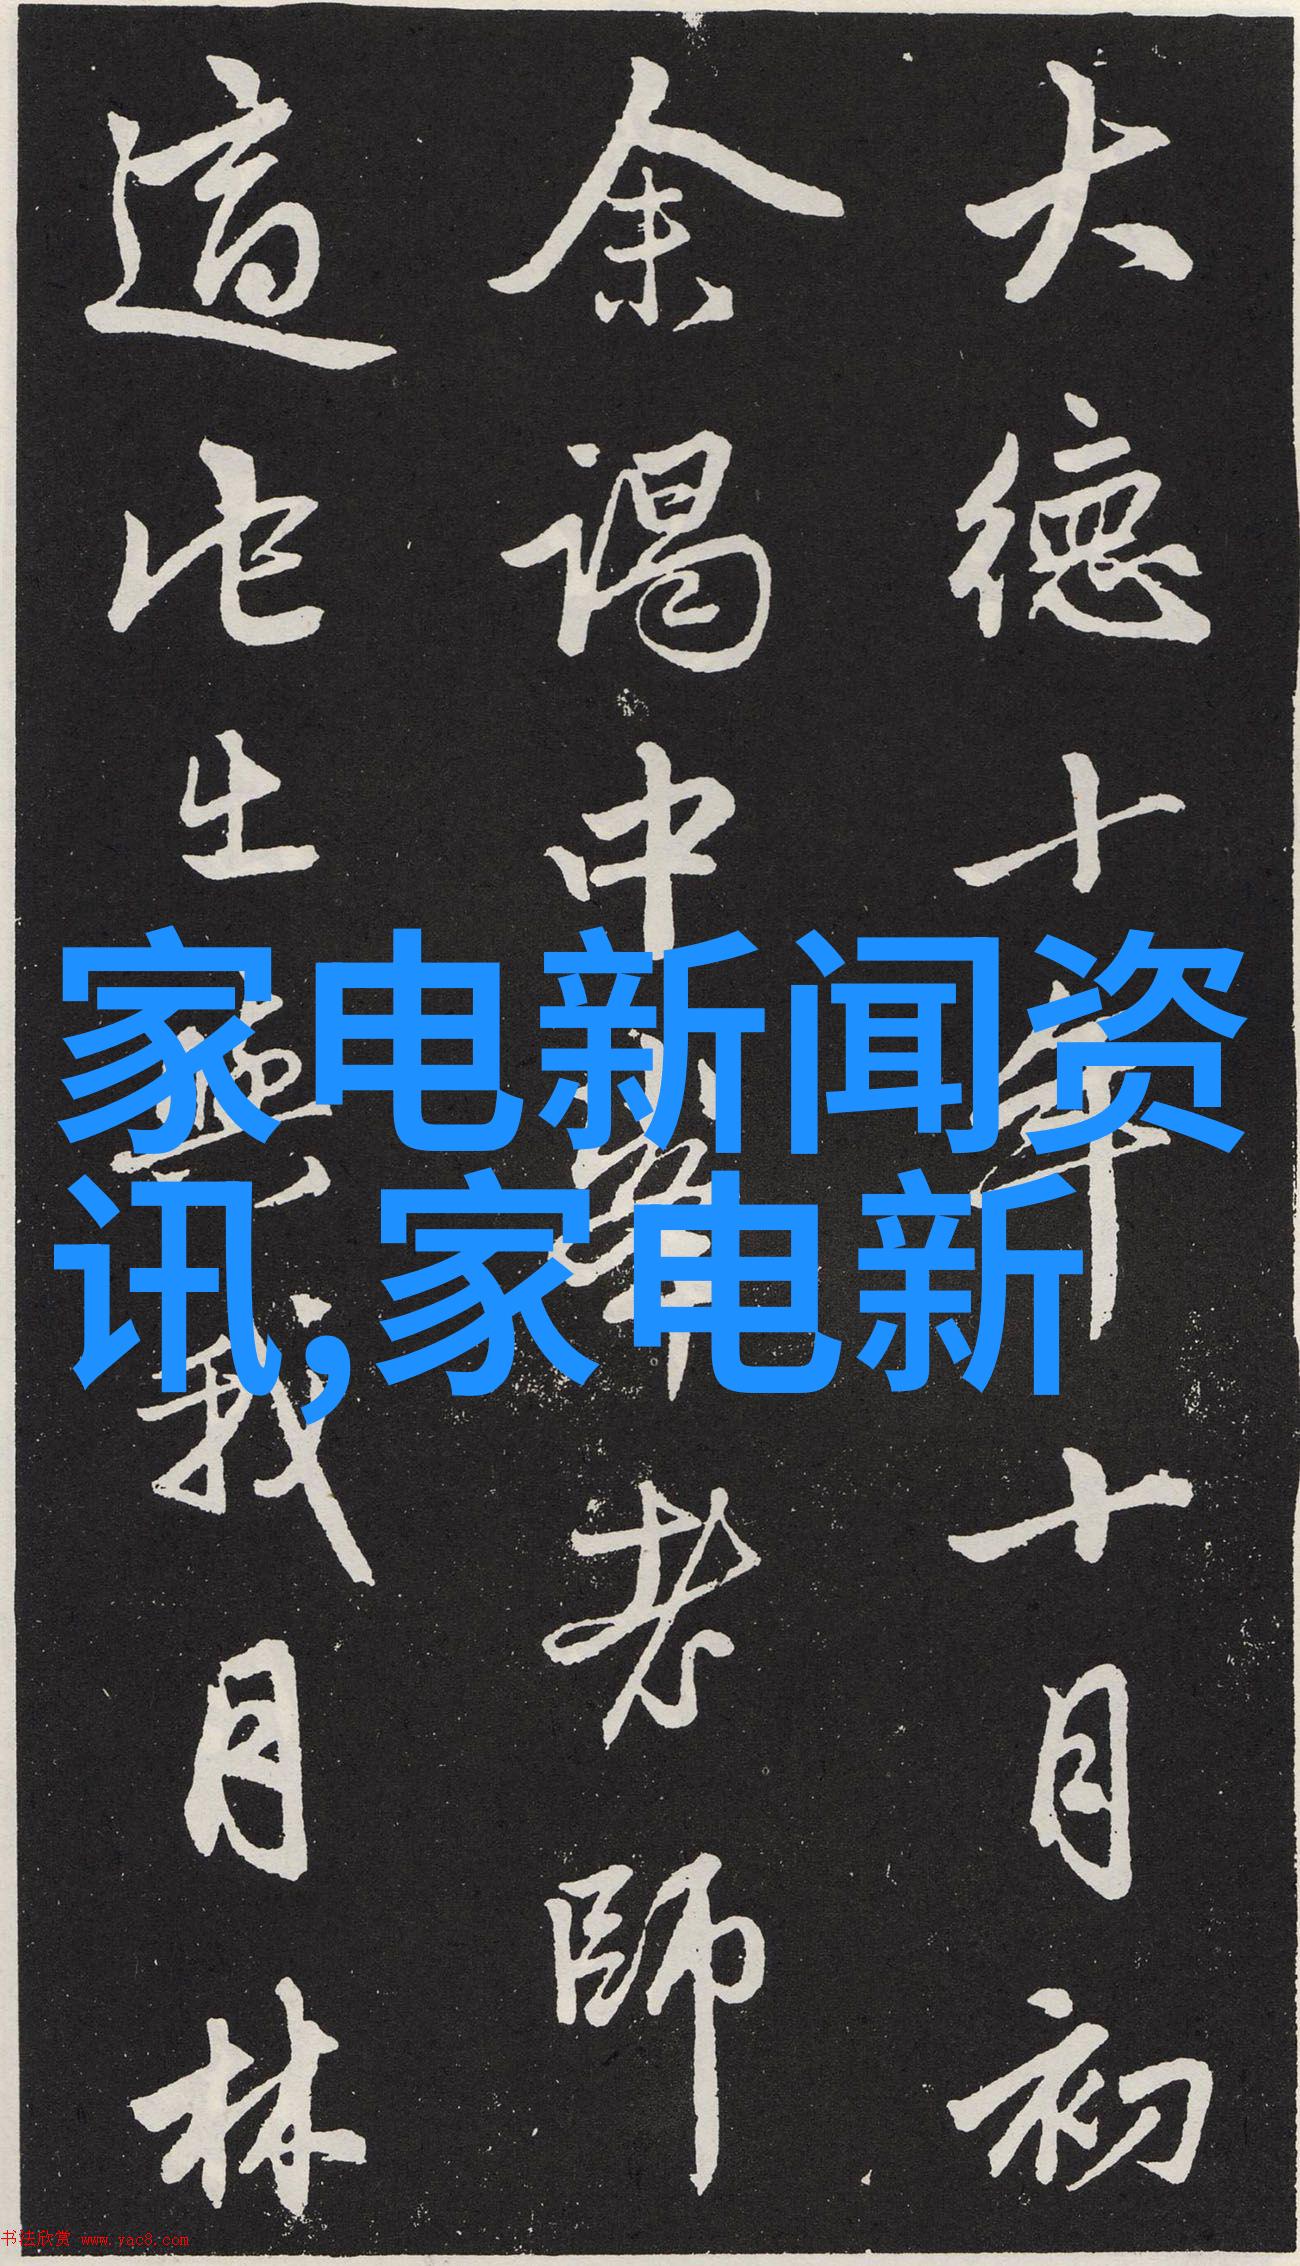 大德十年十月初
余謁中峯老師
道此出與我月林
家电新闻资
讯,家电新
书法欣赏 www.yac8.com